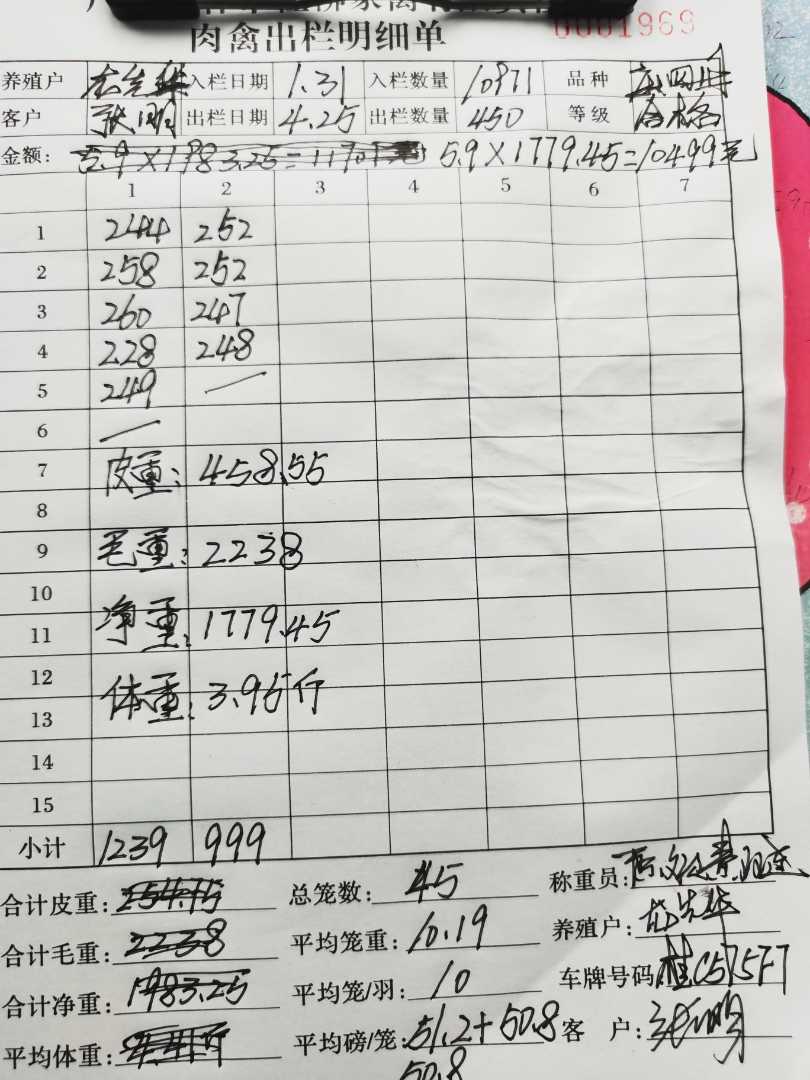 肉禽出栏明细单
0001969
养殖户 入栏日期 1.31 入栏数量 10971 品种
客户 张明 出栏日期 4.25 出栏数量 450 等级 合格
金额: 5.9×1983.25=11701 5.9×1779.45=10499元
1 2 3 4 5 6 7
1 244 252
2 258 252
3 260 247
4 228 248
5 249 —
6 —
7 皮重: 458.55
8
9 毛重: 2238
10
11 净重: 1779.45
12
13 体重: 3.95斤
14
15
小计 1239 999
合计皮重: 254.75 总笼数: 45 称重员:
合计毛重: 2238 平均笼重: 10.19 养殖户:
合计净重: 1983.25 平均笼/羽: 10 车牌号码 桂C575F7
平均体重: 4.41斤 平均磅/笼: 51.2+50.8 客户:
50.8